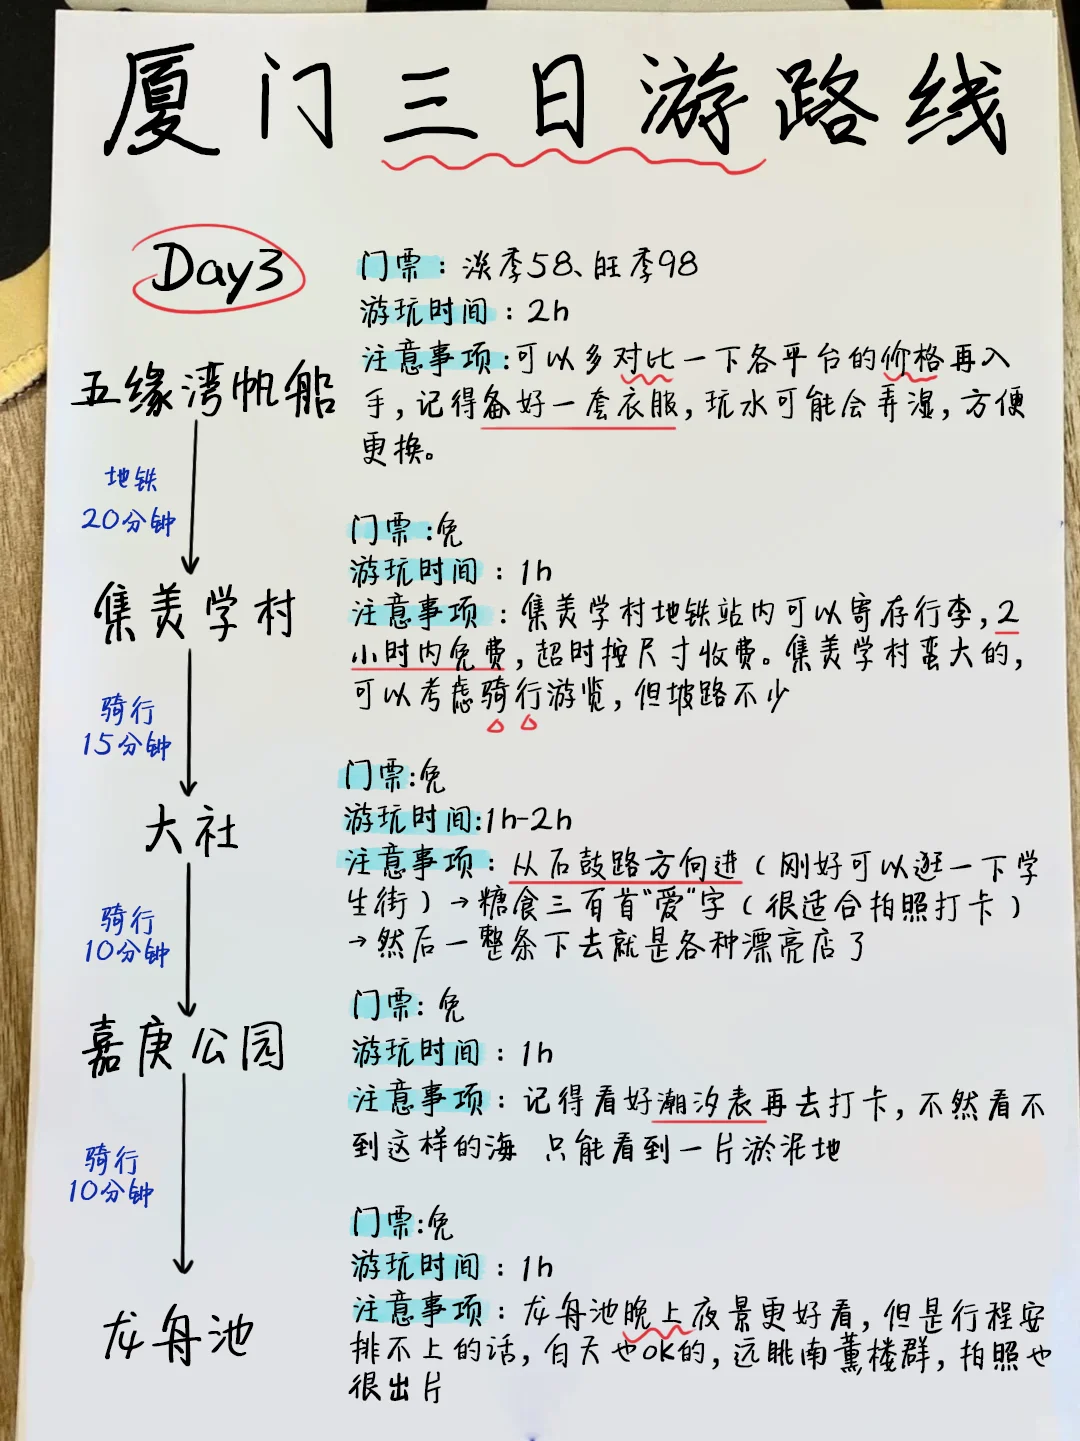 厦门三日游路线
Day3
门票：淡季58、旺季98
游玩时间：2h
五缘湾帆船
注意事项:可以多对比一下各平台的价格再入
手，记得备好一套衣服，玩水可能会弄湿，方便
更换。
地铁
20分钟
门票:免
游玩时间：1h
集美学村
注意事项：集美学村地铁站内可以寄存行李，2
小时内免费，超时按尺寸收费。集美学村蛮大的，
可以考虑骑行游览，但坡路不少
骑行
15分钟
门票:免
游玩时间:1h-2h
大社
注意事项：从石鼓路方向进（刚好可以逛一下学
生街）→糖食三百首“爱”字（很适合拍照打卡）
→然后一整条下去就是各种漂亮店了
骑行
10分钟
门票：免
游玩时间：1h
嘉庚公园
注意事项：记得看好潮汐表再去打卡，不然看不
到这样的海 只能看到一片淤泥地
骑行
10分钟
门票:免
游玩时间：1h
龙舟池
注意事项：龙舟池晚上夜景更好看，但是行程安
排不上的话，白天也ok的，远眺南薰楼群，拍照也
很出片